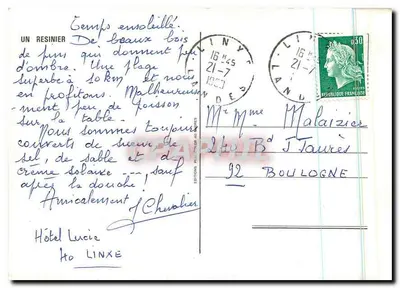 Temps ensoleillé.
UN RESINIER
De beaux bois
de pins qui donnent peu
d'ombre. Une plage
superbe à 10 km et nous
en profitons. Malheureuse-
ment, peu de poisson
sur la table.
Nous sommes toujours
couverts de sueur, de
sel, de sable et de
crème solaire ---, sauf
après la douche!
Amicalement
J Chevalier
Hôtel Lucie
40 LINXE
LINXE
16 H 45
21-7
LANDES
LINXE
16 H
21-7
LAN
0,30
REPUBLIQUE FRANÇAISE
Mr Mme Malaizier
Bd J Jaurès
92 BOULOGNE